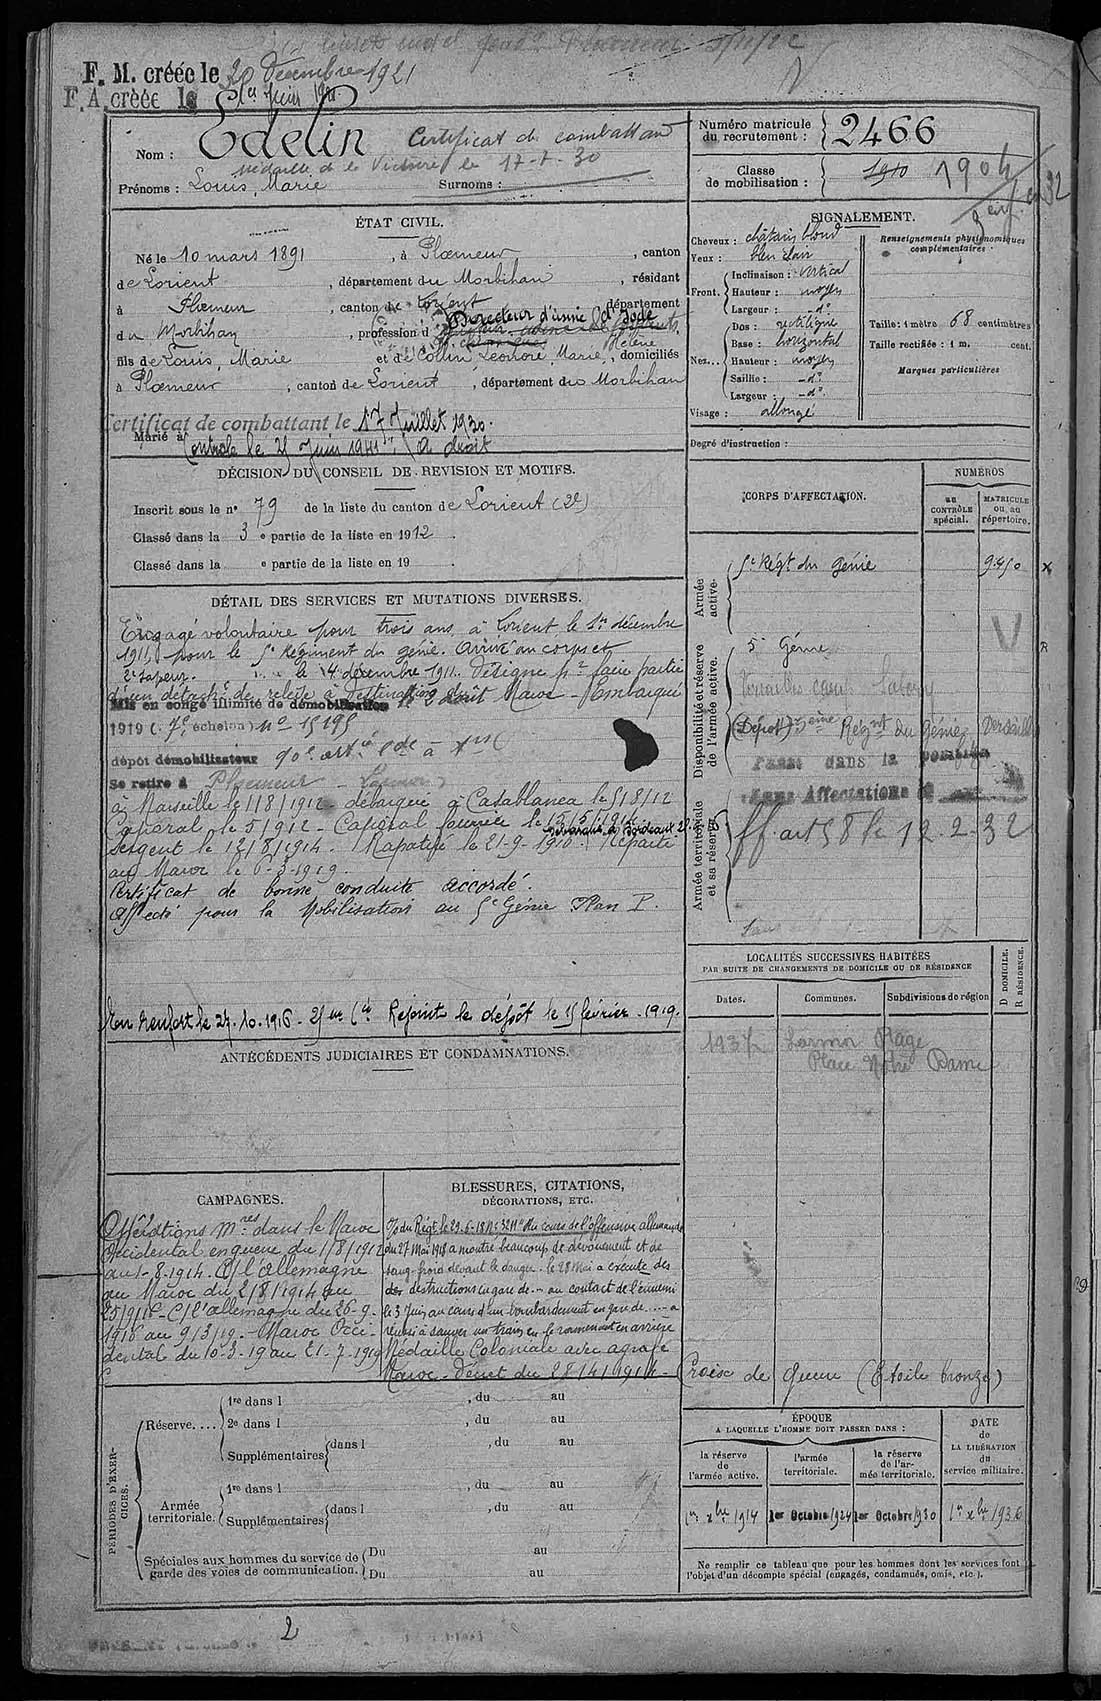 F. M. créée le 20 Décembre 1921
F. A. créée le
Nom : Edelin
Certificat de combattant
Médaille de la Victoire le 17-7-30
Prénoms : Louis, Marie
Surnoms :
Numéro matricule du recrutement : 2466
Classe de mobilisation : 1910 1904
ÉTAT CIVIL.
Né le 10 mars 1891, à Ploemeur, canton
de Lorient, département du Morbihan, résidant
à Ploemeur, canton de Lorient département
du Morbihan, profession d Directeur d'usine d'Iode
fils de Louis, Marie et de Collin, Léonore Marie, Hélène, domiciliés
à Ploemeur, canton de Lorient, département du Morbihan
Certificat de combattant le 17 Juillet 1930.
Marié à
Contrôle le 25 Juin 1941 A droit
DÉCISION DU CONSEIL DE REVISION ET MOTIFS.
Inscrit sous le n° 79 de la liste du canton de Lorient (2e)
Classé dans la 3e partie de la liste en 1912.
Classé dans la e partie de la liste en 19 .
DÉTAIL DES SERVICES ET MUTATIONS DIVERSES.
Engagé volontaire pour trois ans à Lorient le 1er décembre
1911, pour le 5e Régiment du génie. Arrivé au corps et
2e sapeur. le 4 décembre 1911. Désigné pr faire partie
d'un détacht de relève à destination du Maroc - Embarqué
Mis en congé illimité de démobilisation le 2 août
1919 (7e échelon) No 1519
dépôt démobilisateur
Se retire à Ploemeur
à Marseille le 1/8/1912 - débarqué à Casablanca le 5/8/12
Caporal le 5/9/12 - Caporal fourrier le 15/5/1914
Sergent le 12/8/1914. Rapatrié le 21-9-1916. Débarqué à Bordeaux Réparti
au Maroc le 6-3-1919.
Certificat de bonne conduite accordé.
Affecté pour la Mobilisation au 5e Génie Plan P.
En renfort le 24.10.1916 - 25me Cie Rejoint le dépôt le 15 février 1919.
ANTÉCÉDENTS JUDICIAIRES ET CONDAMNATIONS.
CAMPAGNES.
Opérations mres dans le Maroc
Occidental en guerre du 1/8/1912
au 1-8-1914. C/ l'allemagne
au Maroc du 2/8/1914 au
25/9/16 - C/ l'allemagne du 26-9-
1916 au 9/3/19. Maroc Occi-
dental du 10-3-19 au 21-7-1919
BLESSURES, CITATIONS,
DÉCORATIONS, ETC.
O/ du Régt le 29-6-18 No 3211 "Au cours de l'offensive allemande
du 27 Mai 1918 a montré beaucoup de dévouement et de
sang-froid devant le danger. le 28 Mai a exécuté des
des destructions en gare de ... au contact de l'ennemi
le 3 Juin au cours d'un bombardement en gare de ... a
réussi à sauver un train en le ramenant en arrière
Médaille Coloniale avec agrafe
Maroc - Décret du 28/4/1914 - Croix de Guerre (Etoile bronze)
PÉRIODES D'EXERCICES.
Réserve....
1re dans l , du au
2e dans l , du au
Supplémentaires dans l , du au
Armée territoriale.
1re dans l , du au
Supplémentaires dans l , du au
Spéciales aux hommes du service de garde des voies de communication. Du au
Du au
SIGNALEMENT.
Cheveux : châtain blond
Yeux : bleu clair
Front. Inclinaison : vertical
Hauteur : moyen
Largeur : do
Nez... Dos : rectiligne
Base : horizontal
Hauteur : moyen
Saillie : do
Largeur : do
Visage : allongé
Renseignements physionomiques complémentaires :
Taille : 1 mètre 68 centimètres
Taille rectifiée : 1 m. cent.
Marques particulières
Degré d'instruction :
CORPS D'AFFECTATION.
NUMÉROS
au CONTRÔLE spécial.
MATRICULE ou au répertoire.
Armée active.
5e Régt du Génie 9450
Disponibilité et réserve de l'armée active.
5e Génie
Versailles camp Satory
(Dépôt) 5ème Régnt du Génie Versailles
Passé dans la position
Sans Affectation
Armée territoriale et sa réserve
aff. art 58 le 12-2-32
Sans
LOCALITÉS SUCCESSIVES HABITÉES
PAR SUITE DE CHANGEMENTS DE DOMICILE OU DE RÉSIDENCE
Dates. Communes. Subdivisions de région D DOMICILE. R RÉSIDENCE.
1937 Larmor Plage
Place Notre Dame
ÉPOQUE
A LAQUELLE L'HOMME DOIT PASSER DANS :
la réserve de l'armée active.
l'armée territoriale.
la réserve de l'armée territoriale.
DATE de LA LIBÉRATION du service militaire.
1er Xbre 1914 1er Octobre 1924 1er Octobre 1930 1er Xbre 1936
Ne remplir ce tableau que pour les hommes dont les services font
l'objet d'un décompte spécial (engagés, condamnés, omis, etc.).
2